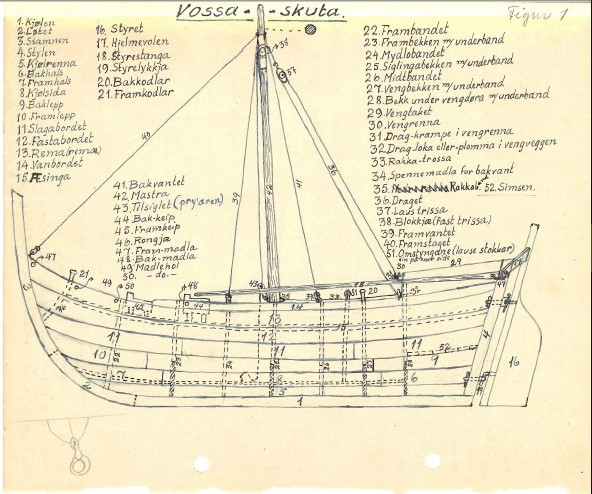 Vossa-skuta.
Figur 1
1. Kjølen
2. Lotet
3. Stamnen
4. Stylen
5. Kjølrenna
6. Bakhals
7. Framhals
8. Kjølsida
9. Baklepp
10. Framlepp
11. Slagabordet
12. Fastabordet
13. Rema (remæ)
14. Vanbordet
15. Æsinga
16. Styret
17. Hjelmevolen
18. Styrestanga
19. Styrelykkja
20. Bakkodlar
21. Framkodlar
22. Frambandet
23. Frambekken m/underband
24. Mydlobandet
25. Siglingabekken m/underband
26. Midtbandet
27. Vengbekken m/underband
28. Bekk under vengdøra m/underband
29. Vengtaket
30. Vengrenna
31. Drag-krampe i vengrenna
32. Drag-loka eller-plomma i vengveggen
33. Rakka-trossa
34. Spennemadla for bakvant
35. Rakkal
52. Simsen.
36. Draget
37. Laus trissa
38. Blokkjæ (fast trissa)
39. Framvantet
40. Framstaget
51. Omstyngdne (lause stokkar)
41. Bakvantet
42. Mastra
43. Tilsiglet (pry'aren)
44. Bak-keip
45. Framkeip
46. Rongjæ
47. Fram-madla
48. Bak-madla
49. Madlehol
50. - do. -